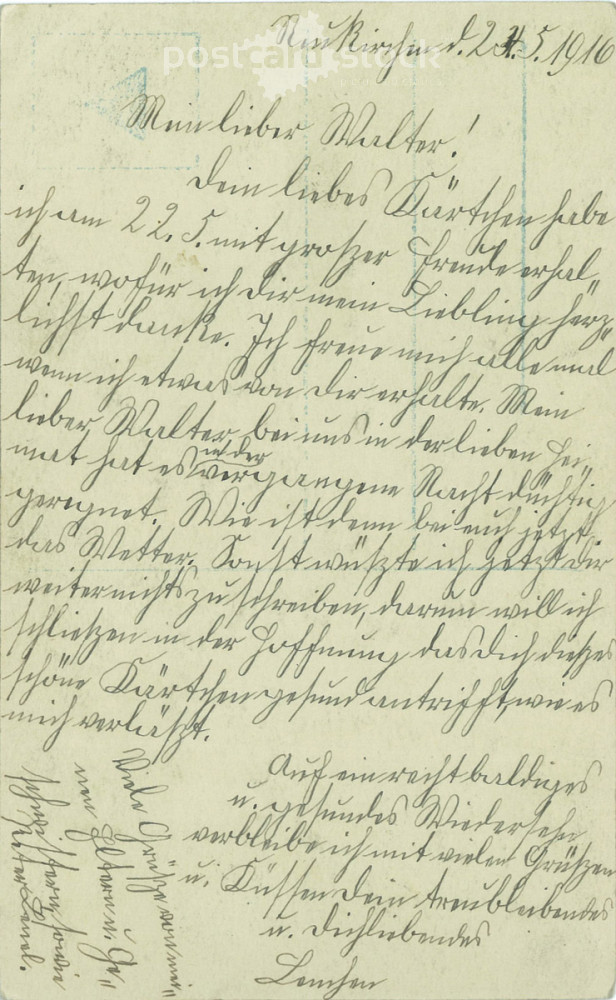 postcard stock
Neukirchen d. 24.5.1916
Mein lieber Walter!
Dein liebes Kärtchen habe
ich am 22.5. mit groszer Freude erhal„
ten, wofür ich Dir mein Liebling herz„
lichst danke. Ich freue mich alle mal
wenn ich etwas von Dir erhalte. Mein
lieber Walter bei uns in der lieben Hei„
in der
mat hat es vergangene Nacht düchtig
geregnet. Wie ist denn bei euch jetzt
das Wetter. Sonst wüszte ich jetzt Dir
weiter nichts zu schreiben, darum will ich
schlieszen in der Hoffnung das Dich dieses
schöne Kärtchen gesund antrifft, wie es
mich verläszt.
Auf ein recht baldiges
u. gesundes Wiedersehn
verbleibe ich mit vielen Grüszen
u. Küssen Dein treubleibendes
u. Dichliebendes
Lenchen
Viele Grüsse von mei„
nen Eltern u. Ge„
schwistern sowie